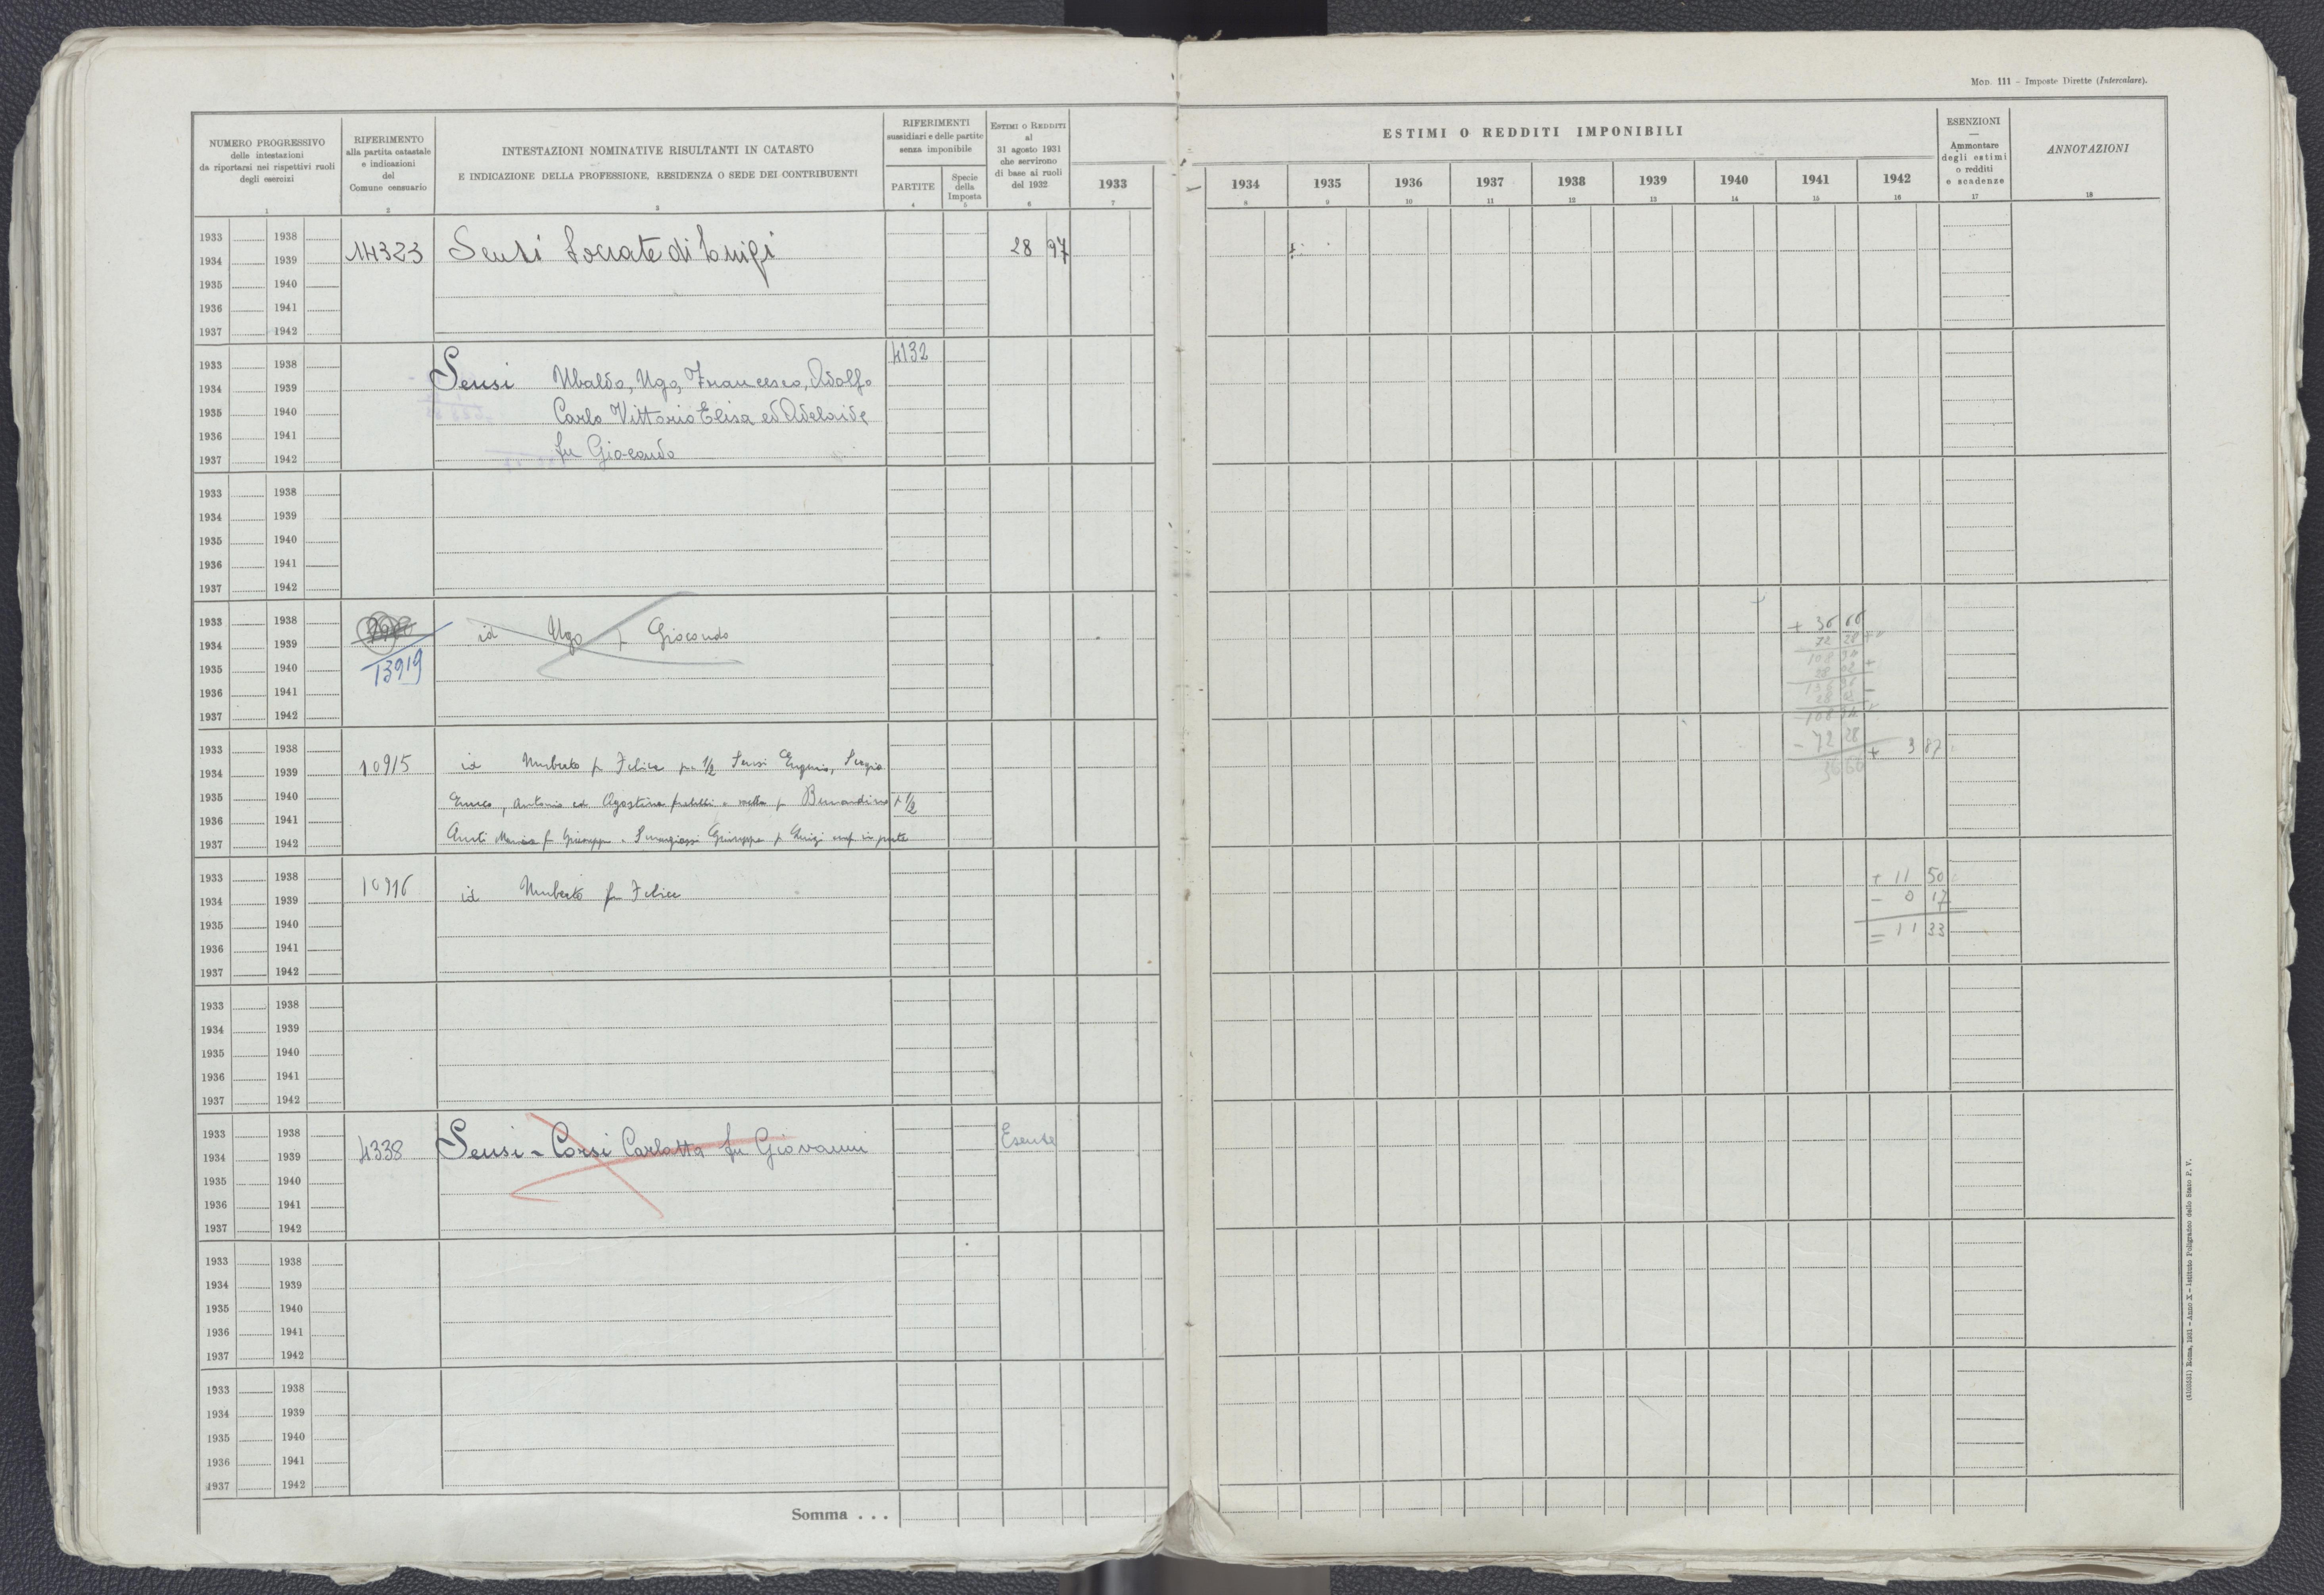 Mod. 111 - Imposte Dirette (Intercalare).
NUMERO PROGRESSIVO
delle intestazioni
da riportarsi nei rispettivi ruoli
degli esercizi
RIFERIMENTO
alla partita catastale
e indicazioni
del
Comune censuario
INTESTAZIONI NOMINATIVE RISULTANTI IN CATASTO
E INDICAZIONE DELLA PROFESSIONE, RESIDENZA O SEDE DEI CONTRIBUENTI
RIFERIMENTI
sussidiari e delle partite
senza imponibile
PARTITE
Specie
della
Imposta
ESTIMI O REDDITI
al
31 agosto 1931
che servirono
di base ai ruoli
del 1932
ESTIMI O REDDITI IMPONIBILI
1933 1934 1935 1936 1937 1938 1939 1940 1941 1942
ESENZIONI
—
Ammontare
degli estimi
o redditi
e scadenze
ANNOTAZIONI
1 2 3 4 5 6 7 8 9 10 11 12 13 14 15 16 17 18
1933 1938
1934 1939 14323 Sensi Socrate di Luigi 28 97
1935 1940
1936 1941
1937 1942
4132
1933 1938
1934 1939 Sensi Ubaldo, Ugo, Francesco, Adolfo
1935 1940 Carlo Vittorio Elisa ed Adelaide
1936 1941
1937 1942 fu Giocondo
1933 1938
1934 1939
1935 1940
1936 1941
1937 1942
1933 1938 + 36 66
1934 1939 id Ugo fu Giocondo 72 28 +
1935 1940 13919 108 94
1936 1941
1937 1942 108 94
1933 1938 - 72 28
1934 1939 10915 id Umberto fu Felice per 1/2 Sensi Eugenio, Sergio + 3 87
36 66
1935 1940 Enrico, Antonio ed Agostina fratelli e sorella fu Bernardino p 1/2
1936 1941
1937 1942 Maria fu Giuseppe e Giuseppe fu Luigi usuf in parte
1933 1938 10916 + 11 50
1934 1939 id Umberto fu Felice - 0 17
1935 1940 = 11 33
1936 1941
1937 1942
1933 1938
1934 1939
1935 1940
1936 1941
1937 1942
1933 1938 Esente
1934 1939 4338 Sensi - Corsi Carlotta fu Giovanni
1935 1940
1936 1941
1937 1942
1933 1938
1934 1939
1935 1940
1936 1941
1937 1942
1933 1938
1934 1939
1935 1940
1936 1941
1937 1942
Somma . . .
Roma, 1931 - Anno X - Istituto Poligrafico dello Stato P. V.